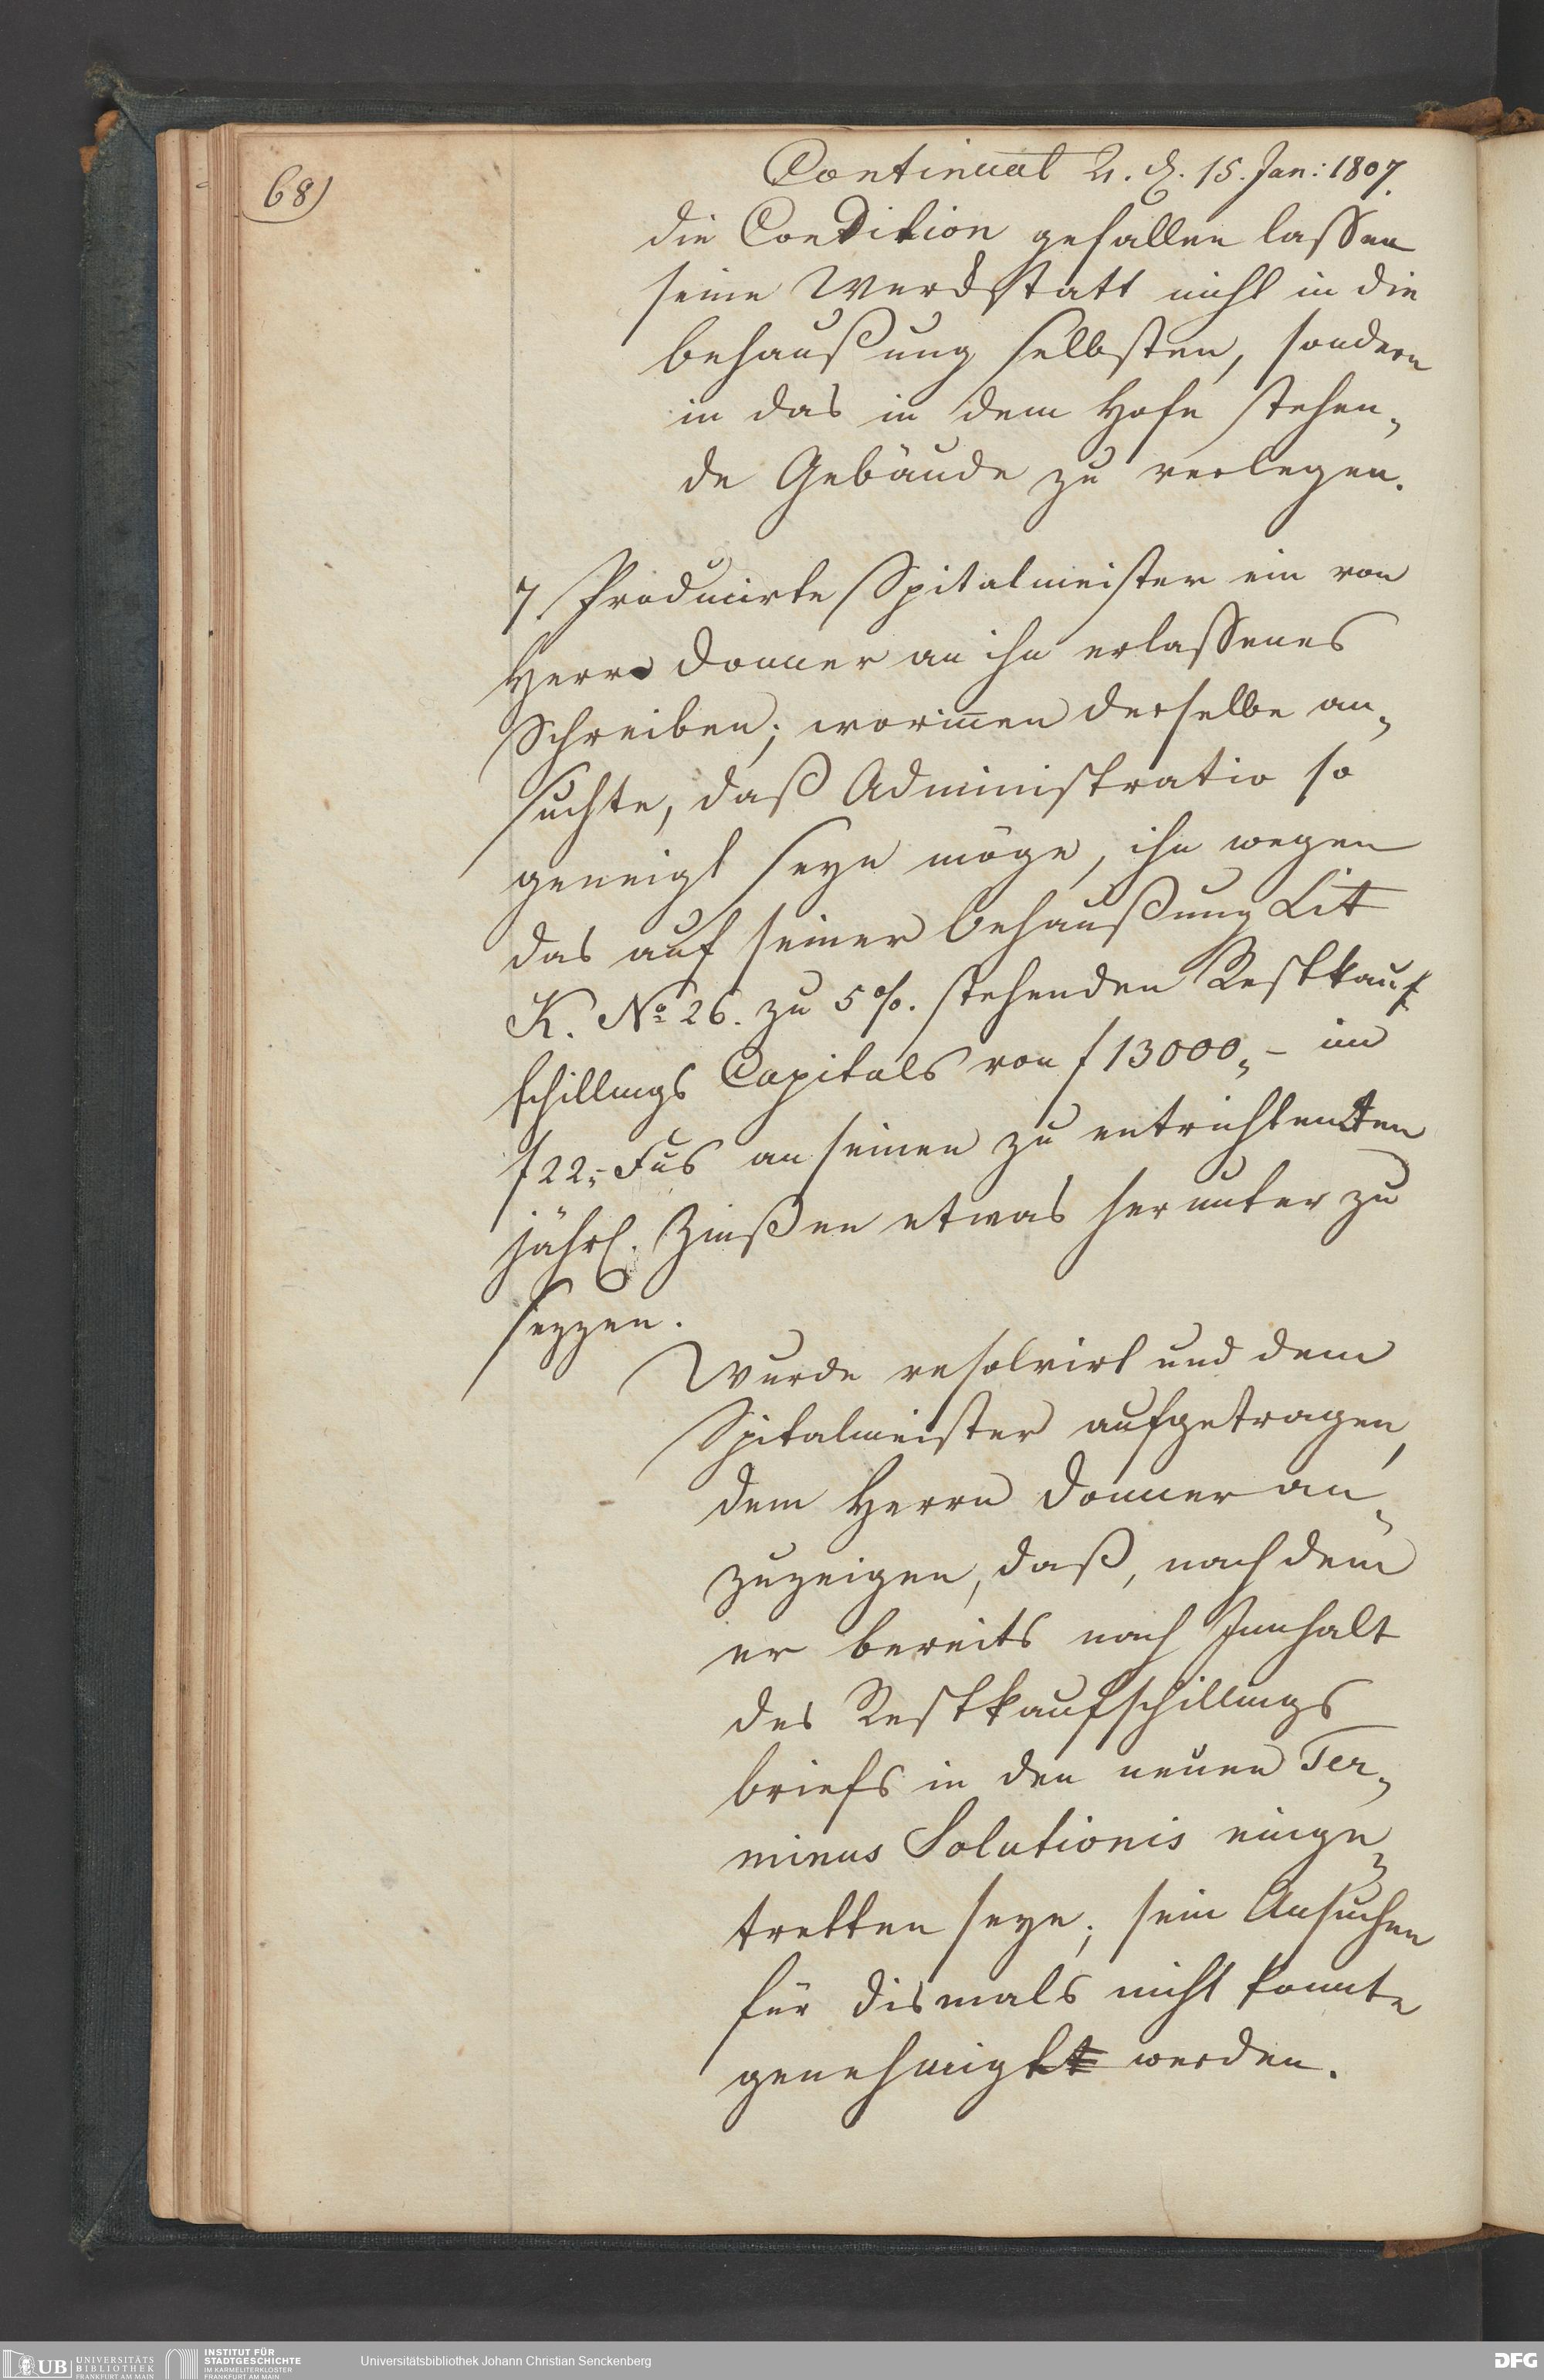 68)
Continuat 2. d. 15. Jan: 1807.
die Condition gefallen lassen
seine Werckstatt nicht in die
behaußung selbsten, sondern
in das in dem Hofe stehen„
de Gebäude zu verlegen.
7. Producirte Spitalmeister ein von
Herrn Donner an ihn erlassenes
Schreiben; worinnen derselbe an„
suchte, daß Administratio so
geneigt seyn möge, ihn wegen
das auf seiner behaußung Lit
K. No 26. zu 5%. stehenden Restkauf
schillings Capitals von f 13000„– im
f 22„– Fus an seinen zu entrichtenden
jährl. Zinßen etwas herunter zu
sezzen.
Wurde resolvirt und dem
Spitalmeister aufgetragen,
dem Herrn Donner an„
zuzeigen, daß, nach dem
er bereits nach Innhalt
des Restkaufschillings
briefs in den neuen Ter„
minus Solutionis einge„
tretten seye; sein Ansuchen
für dismals nicht konnte
genehmigt werden.
UB UNIVERSITÄTS
BIBLIOTHEK
FRANKFURT AM MAIN
INSTITUT FÜR
STADTGESCHICHTE
IM KARMELITERKLOSTER
FRANKFURT AM MAIN
Universitätsbibliothek Johann Christian Senckenberg
DFG